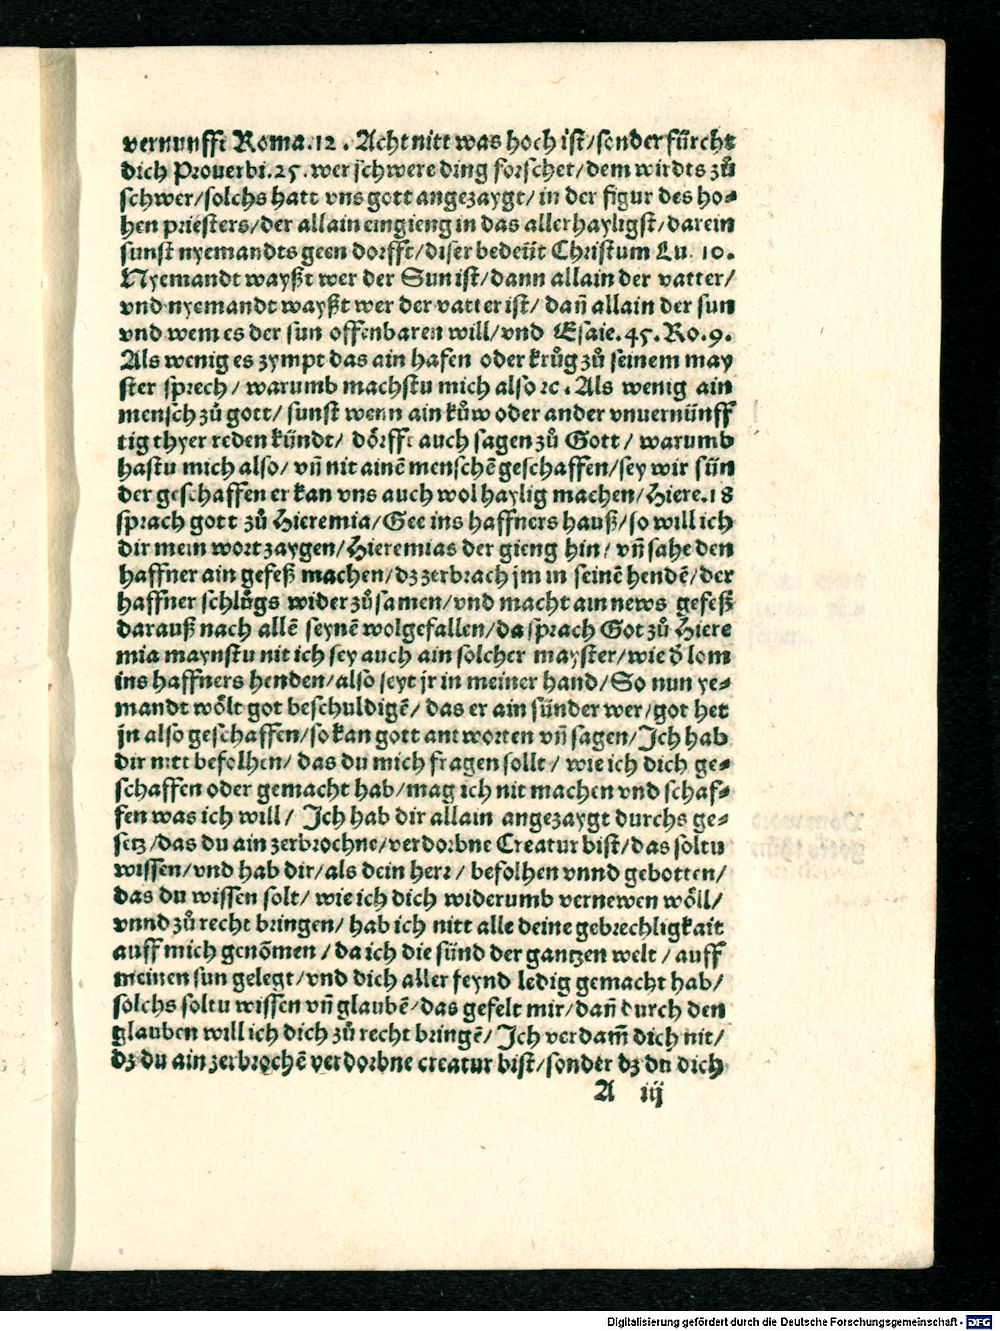 vernunfft Roma.12. Acht nitt was hoch ist/sonder fürcht
dich Prouerbi.25. wer schwere ding forschet/dem wirdts zů
schwer/solchs hatt vns gott angezaygt/in der figur des ho-
hen priesters/der allain eingieng in das allerhayligst/darein
sunst nyemandts geen dorfft/diser bedeüt Christum Lu. 10.
Nyemandt wayßt wer der Sun ist/dann allain der vatter/
vnd nyemandt wayßt wer der vatter ist/ dañ allain der sun
vnd wem es der sun offenbaren will/vnd Esaie.45.Ro.9.
Als wenig es zympt das ain hafen oder krůg zů seinem may
ster sprech/ warumb machstu mich also ꝛc. Als wenig ain
mensch zů gott/ sunst wenn ain kůw oder ander vnuernünff
tig thyer reden kündt/ dörfft auch sagen zů Gott/ warumb
hastu mich also/ vñ nit ainē menschē geschaffen/sey wir sün
der geschaffen er kan vns auch wol haylig machen/Hiere.18
sprach gott zů Hieremia/Gee ins haffners hauß/so will ich
dir mein wort zaygen/Hieremias der gieng hin/ vñ sahe den
haffner ain gefeß machen/dz zerbrach jm in seinē hendē/der
haffner schlůgs wider zůsamen/vnd macht ain news gefeß
darauß nach allē seynē wolgefallen/da sprach Got zů Hiere
mia maynstu nit ich sey auch ain solcher mayster/wie d̛ lom
ins haffners henden/also seyt jr in meiner hand/So nun ye-
mandt wölt got beschuldigē/ das er ain sünder wer/got het
jn also geschaffen/so kan gott antworten vñ sagen/Ich hab
dir nitt befolhen/ das du mich fragen sollt/ wie ich dich ge-
schaffen oder gemacht hab/mag ich nit machen vnd schaf-
fen was ich will/ Ich hab dir allain angezaygt durchs ge-
setz/das du ain zerbrochne/verdorbne Creatur bist/das soltu
wissen/vnd hab dir/als dein herr/ befolhen vnnd gebotten/
das du wissen solt/ wie ich dich widerumb vernewen wöll/
vnnd zů recht bringen/ hab ich nitt alle deine gebrechligkait
auff mich genōmen/ da ich die sünd der gantzen welt/ auff
meinen sun gelegt/vnd dich aller feynd ledig gemacht hab/
solchs soltu wissen vñ glaubē/das gefelt mir/dañ durch den
glauben will ich dich zů recht bringē/ Ich verdam̄ dich nit/
dz du ain zerbrochē verdorbne creatur bist/sonder dz du dich
A iij
Digitalisierung gefördert durch die Deutsche Forschungsgemeinschaft - DFG